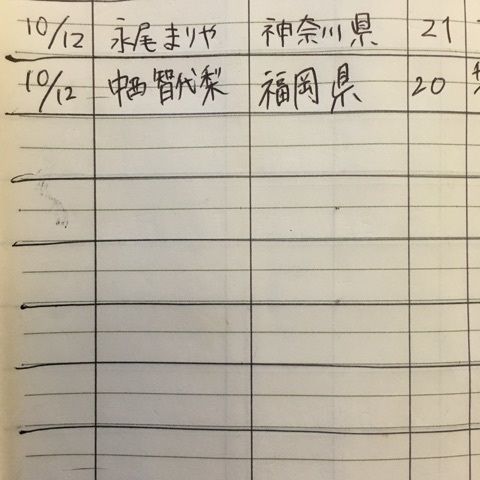 10/12 永尾まりや 神奈川県 21
10/12 中西智代梨 福岡県 20